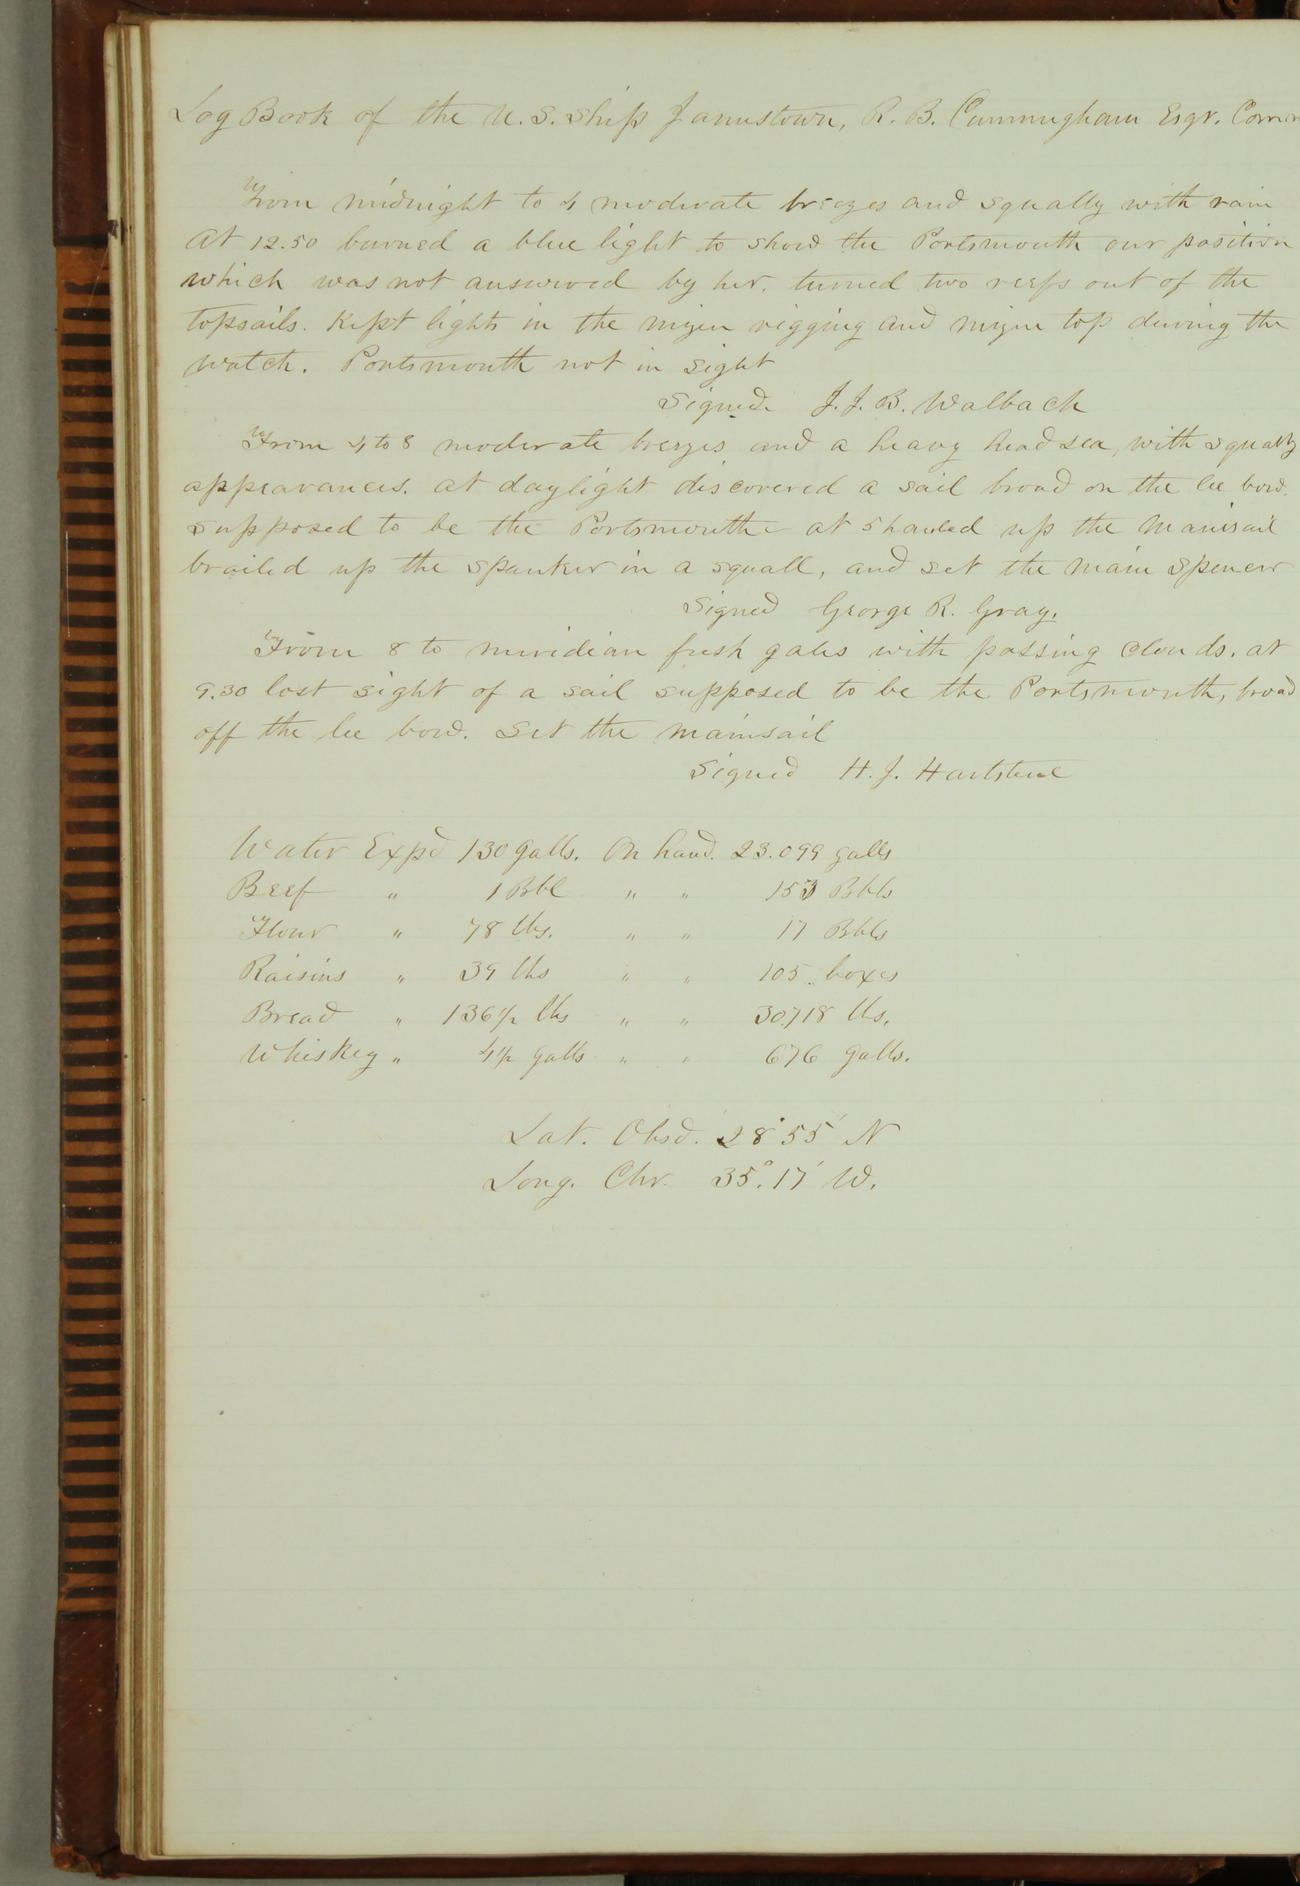 Log Book of the U.S. Ship Jamestown, R. B. Cunningham Esqr. Comm
From midnight to 4 moderate breezes and squally with rain
At 12.50 burned a blue light to show the Portsmouth our position
which was not answered by her. turned two reefs out of the
topsails. Kept lights in the mizen rigging and mizen top during the
watch. Portsmouth not in sight
Signed. J. J. B. Walbach
From 4 to 8 moderate breezes and a heavy head sea, with squally
appearances. at daylight discovered a sail broad on the lee bow.
supposed to be the Portsmouth - at 5 hauled up the Mainsail
brailed up the spanker in a squall, and set the main spencer
Signed George R. Gray.
From 8 to meridian fresh gales with passing clouds. at
9.30 lost sight of a sail supposed to be the Portsmouth, broad
off the lee bow. Set the mainsail
Signed H. J. Hartstene
Water Expd 130 galls. On hand. 23.099 galls
Beef " 1 Bbl " " 153 Bbls
Flour " 78 lbs. " " 17 Bbls
Raisins " 39 lbs " " 105 boxes
Bread " 136 1/2 lbs " " 30718 lbs.
Whiskey " 4 1/2 galls " " 676 galls.
Lat. Obsd. 28° 55' N
Long. Chr. 35°. 17' W.